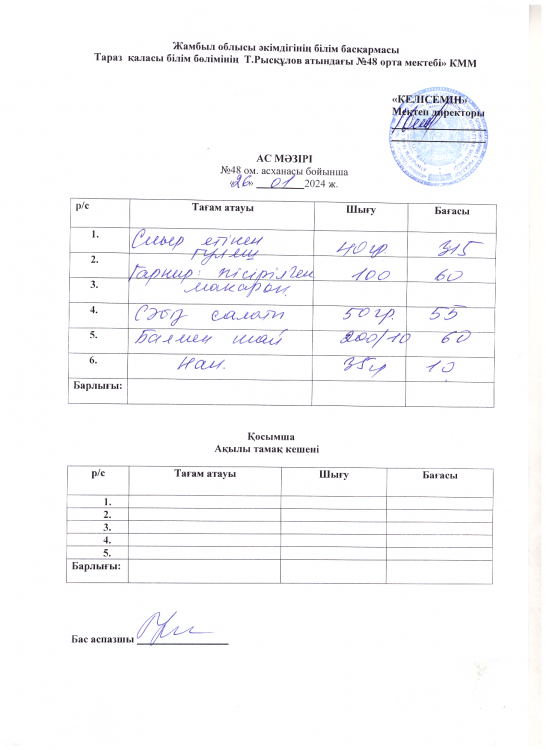 Жамбыл облысы әкімдігінің білім басқармасы
Тараз қаласы білім бөлімінің Т.Рысқұлов атындағы №48 орта мектебі» КММ
«КЕЛІСЕМІН»
Мектеп директоры
АС МӘЗІРІ
№48 ом. асханасы бойынша
«26» 01 2024 ж.
р/с Тағам атауы Шығу Бағасы
1. Сиыр етінен гуляш 40 гр. 315
2.
Гарнир: пісірілген 100 60
3. макарон.
4. Сәбіз салаты 50 гр. 55
5. Балмен шай 200/10 60
6. Нан. 35 10
Барлығы:
Қосымша
Ақылы тамақ кешені
р/с Тағам атауы Шығу Бағасы
1.
2.
3.
4.
5.
Барлығы:
Бас аспазшы